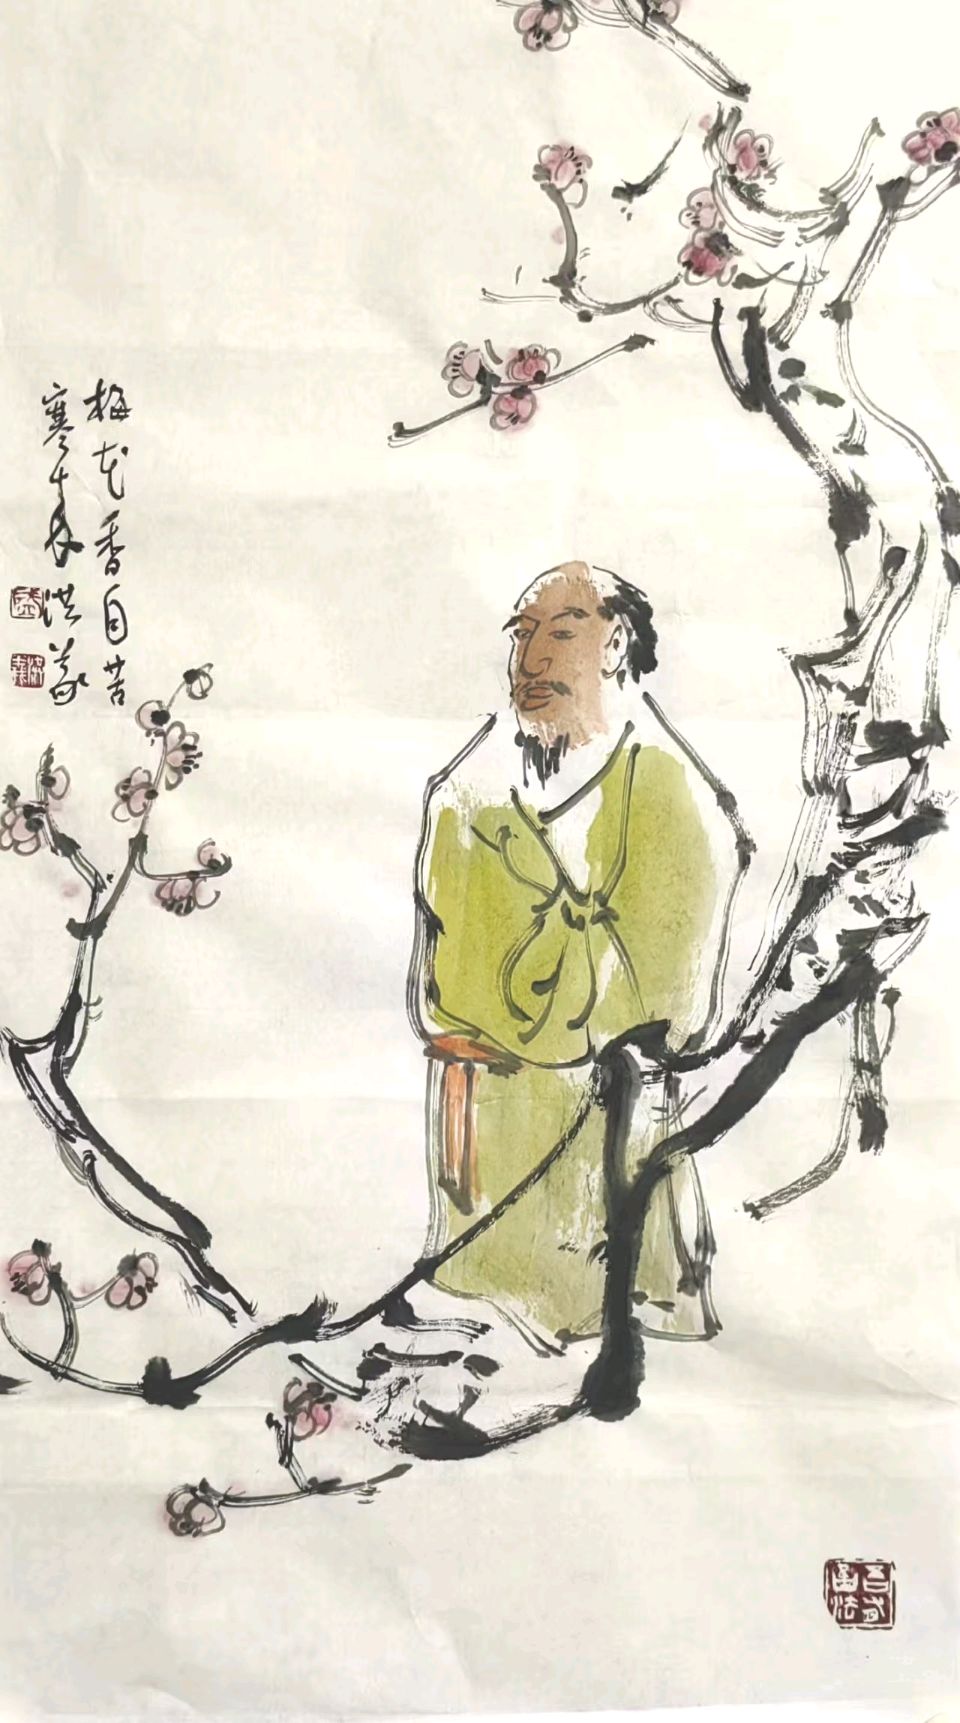 梅花香自苦
寒来 洪義